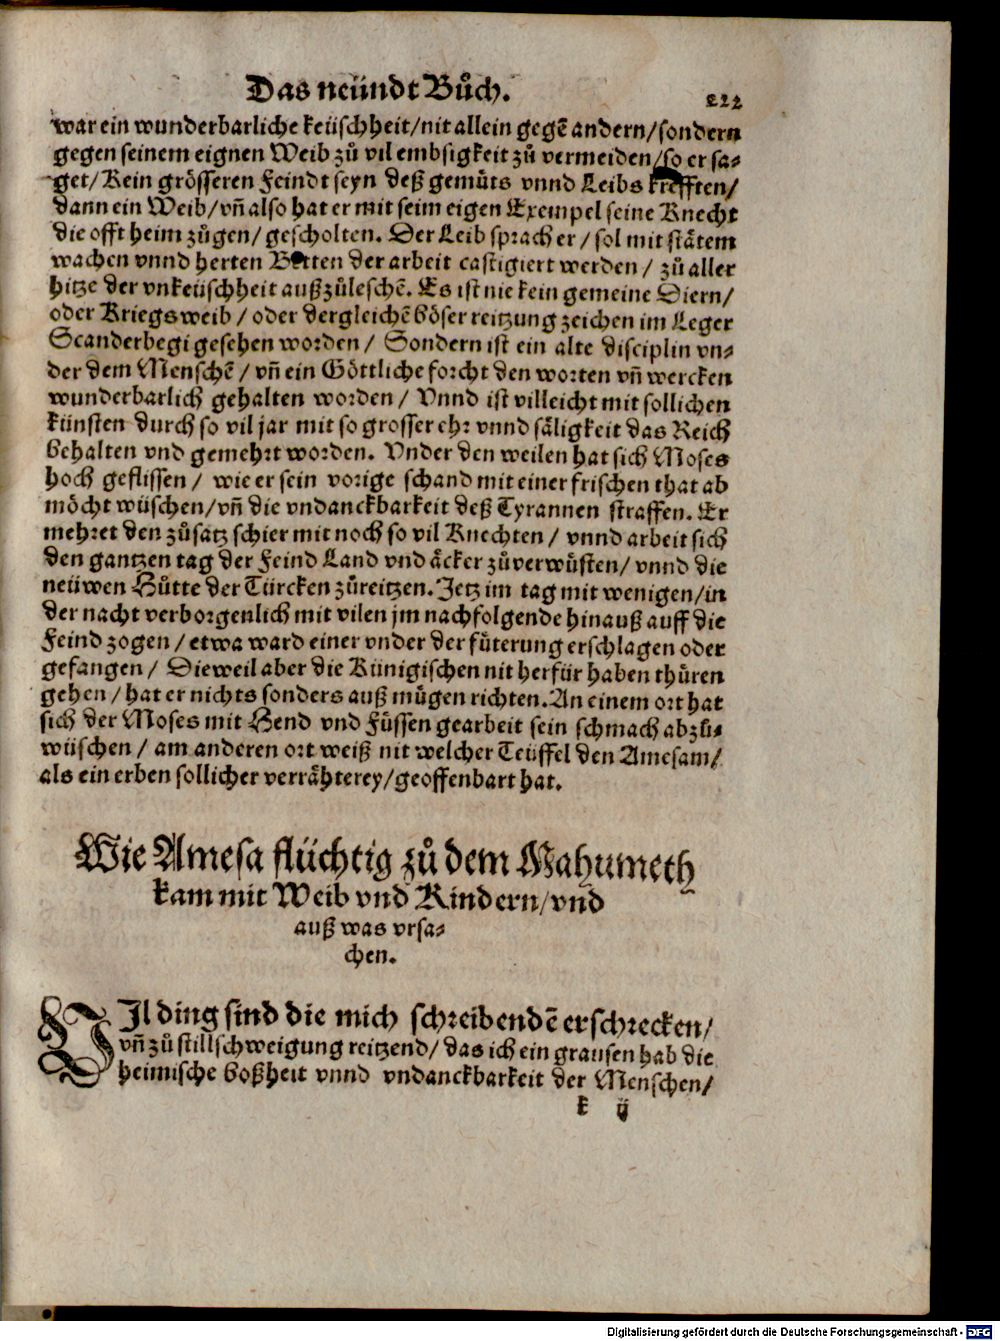 Das neündt Bůch.
222
war ein wunderbarliche keüschheit/nit allein gegē andern/sondern
gegen seinem eignen Weib zů vil embsigkeit zů vermeiden/so er sa⸗
get/Kein grösseren Feindt seyn deß gemůts vnnd Leibs krefften/
dann ein Weib/vñ also hat er mit seim eigen Exempel seine Knecht
die offt heim zůgen/gescholten. Der Leib sprach er/sol mit stätem
wachen vnnd herten Betten der arbeit castigiert werden/zů aller
hitze der vnkeüschheit außzůleschē. Es ist nie kein gemeine Diern/
oder Kriegsweib/oder dergleichē böser reitzung zeichen im Leger
Scanderbegi gesehen worden/Sondern ist ein alte disciplin vn⸗
der dem Menschē/vñ ein Göttliche forcht den worten vñ wercken
wunderbarlich gehalten worden/Vnnd ist villeicht mit sollichen
künsten durch so vil jar mit so grosser ehr vnnd säligkeit das Reich
behalten vnd gemehrt worden. Vnder den weilen hat sich Moses
hoch geflissen/wie er sein vorige schand mit einer frischen that ab
möcht wüschen/vñ die vndanckbarkeit deß Tyrannen straffen. Er
mehret den zůsatz schier mit noch so vil Knechten/vnnd arbeit sich
den gantzen tag der Feind Land vnd äcker zůverwüsten/vnnd die
neüwen Hütte der Türcken zůreitzen. Jetz im tag mit wenigen/in
der nacht verborgenlich mit vilen jm nachfolgende hinauß auff die
Feind zogen/etwa ward einer vnder der fůterung erschlagen oder
gefangen/Dieweil aber die Künigischen nit herfür haben thüren
gehen/hat er nichts sonders auß mügen richten. An einem ort hat
sich der Moses mit Hend vnd Füssen gearbeit sein schmach abzů⸗
wüschen/am anderen ort weiß nit welcher Teüffel den Amesam/
als ein erben sollicher verrähterey/geoffenbart hat.
Wie Amesa flüchtig zů dem Mahumeth
kam mit Weib vnd Kindern/vnd
auß was vrsa⸗
chen.
VIl ding sind die mich schreibendē erschrecken/
vñ zů stillschweigung reitzend/das ich ein grausen hab die
heimische boßheit vnnd vndanckbarkeit der Menschen/
k ij
Digitalisierung gefördert durch die Deutsche Forschungsgemeinschaft - DFG